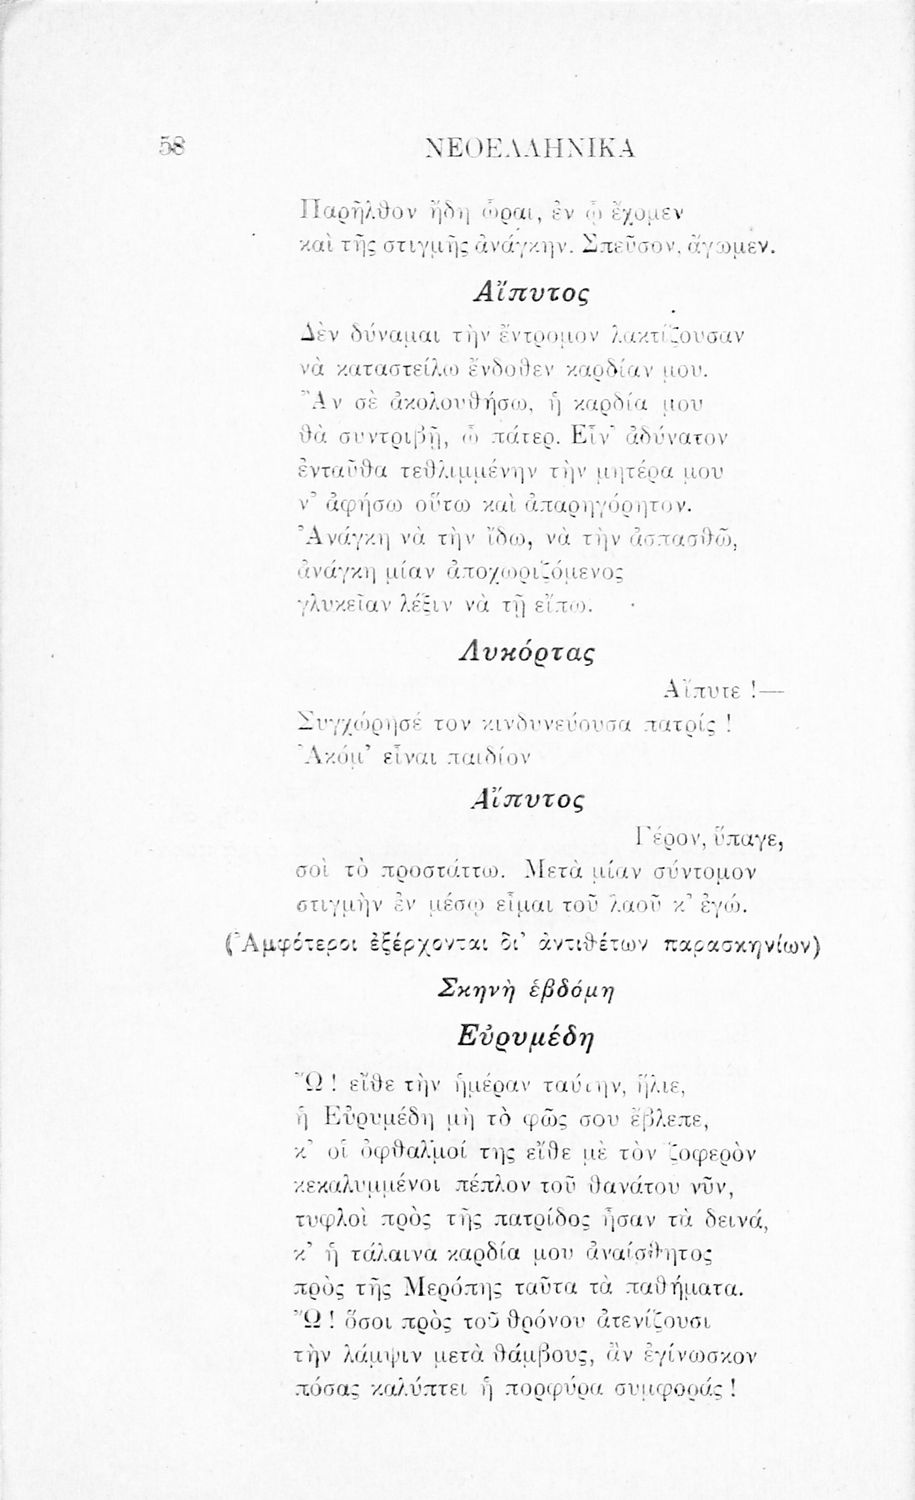 58
ΝΕΟΕΛΛΗΝΙΚΑ
Παρῆλθον ἤδη ὧραι, ἐν ᾧ ἔχομεν
καὶ τῆς στιγμῆς ἀνάγκην. Σπεῦσον, ἄγωμεν.
Αἴπυτος
Δὲν δύναμαι τὴν ἔντρομον λακτίζουσαν
νὰ καταστείλω ἔνδοθεν καρδίαν μου.
Ἂν σὲ ἀκολουθήσω, ἡ καρδία μου
θὰ συντριβῇ, ὦ πάτερ. Εἶν᾿ ἀδύνατον
ἐνταῦθα τεθλιμμένην τὴν μητέρα μου
ν᾿ ἀφήσω οὕτω καὶ ἀπαρηγόρητον.
Ἀνάγκη νὰ τὴν ἴδω, νὰ τὴν ἀσπασθῶ,
ἀνάγκη μίαν ἀποχωριζόμενος
γλυκεῖαν λέξιν νὰ τῇ εἴπω.
Λυκόρτας
Αἴπυτε !—
Συγχώρησέ τον κινδυνεύουσα πατρίς !
Ἀκόμ᾿ εἶναι παιδίον
Αἴπυτος
Γέρον, ὕπαγε,
σοὶ τὸ προστάττω. Μετὰ μίαν σύντομον
στιγμὴν ἐν μέσῳ εἶμαι τοῦ λαοῦ κ᾿ ἐγώ.
(Ἀμφότεροι ἐξέρχονται δι᾿ ἀντιθέτων παρασκηνίων)
Σκηνὴ ἑβδόμη
Εὐρυμέδη
Ὢ ! εἴθε τὴν ἡμέραν ταύτην, ἥλιε,
ἡ Εὐρυμέδη μὴ τὸ φῶς σου ἔβλεπε,
κ᾿ οἱ ὀφθαλμοί της εἴθε μὲ τὸν ζοφερὸν
κεκαλυμμένοι πέπλον τοῦ θανάτου νῦν,
τυφλοὶ πρὸς τῆς πατρίδος ἦσαν τὰ δεινά,
κ᾿ ἡ τάλαινα καρδία μου ἀναίσθητος
πρὸς τῆς Μερόπης ταῦτα τὰ παθήματα.
Ὢ ! ὅσοι πρὸς τοῦ θρόνου ἀτενίζουσι
τὴν λάμψιν μετὰ θάμβους, ἂν ἐγίνωσκον
πόσας καλύπτει ἡ πορφύρα συμφοράς !